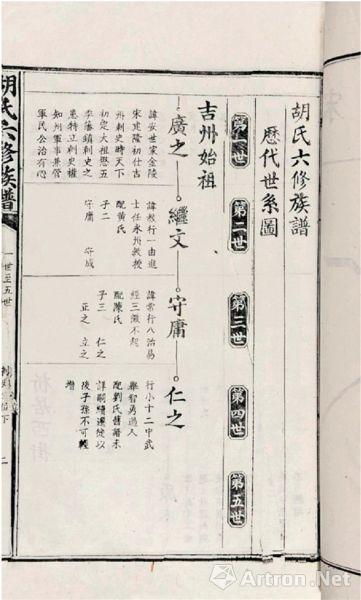 胡氏六修族譜
歷代世系圖
第一世
第二世
第三世
第四世
第五世
吉州始祖
廣之
繼文
守庸
仁之
諱安世家金陵
宋建隆初仕吉
州刺史時天下
初定大祖懲五
季藩鎮刺史之
患特立刺史權
知州軍事兼管
軍民公治有心
諱敖行一由進
士任永州教授
配黃氏
子二
守庸 守成
諱常行八治易
經三徵不起
配陳氏
子三 仁之
正之 立之
行小十二中武
舉智勇過人
配劉氏舊譜未
詳嗣續遷徙以
後子孫不可輕
增
胡氏六修族譜
一世至五世
二
Artron.Net